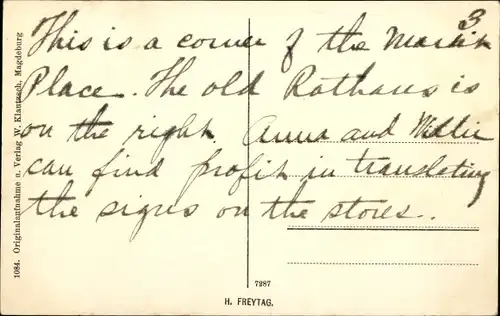 3
This is a corner of the Market
Place. The old Rathaus is
on the right. Anna and Willie
can find profit in translating
the signs on the stores.
1084. Originalaufnahme u. Verlag W. Klautzsch, Magdeburg
7287
H. FREYTAG.